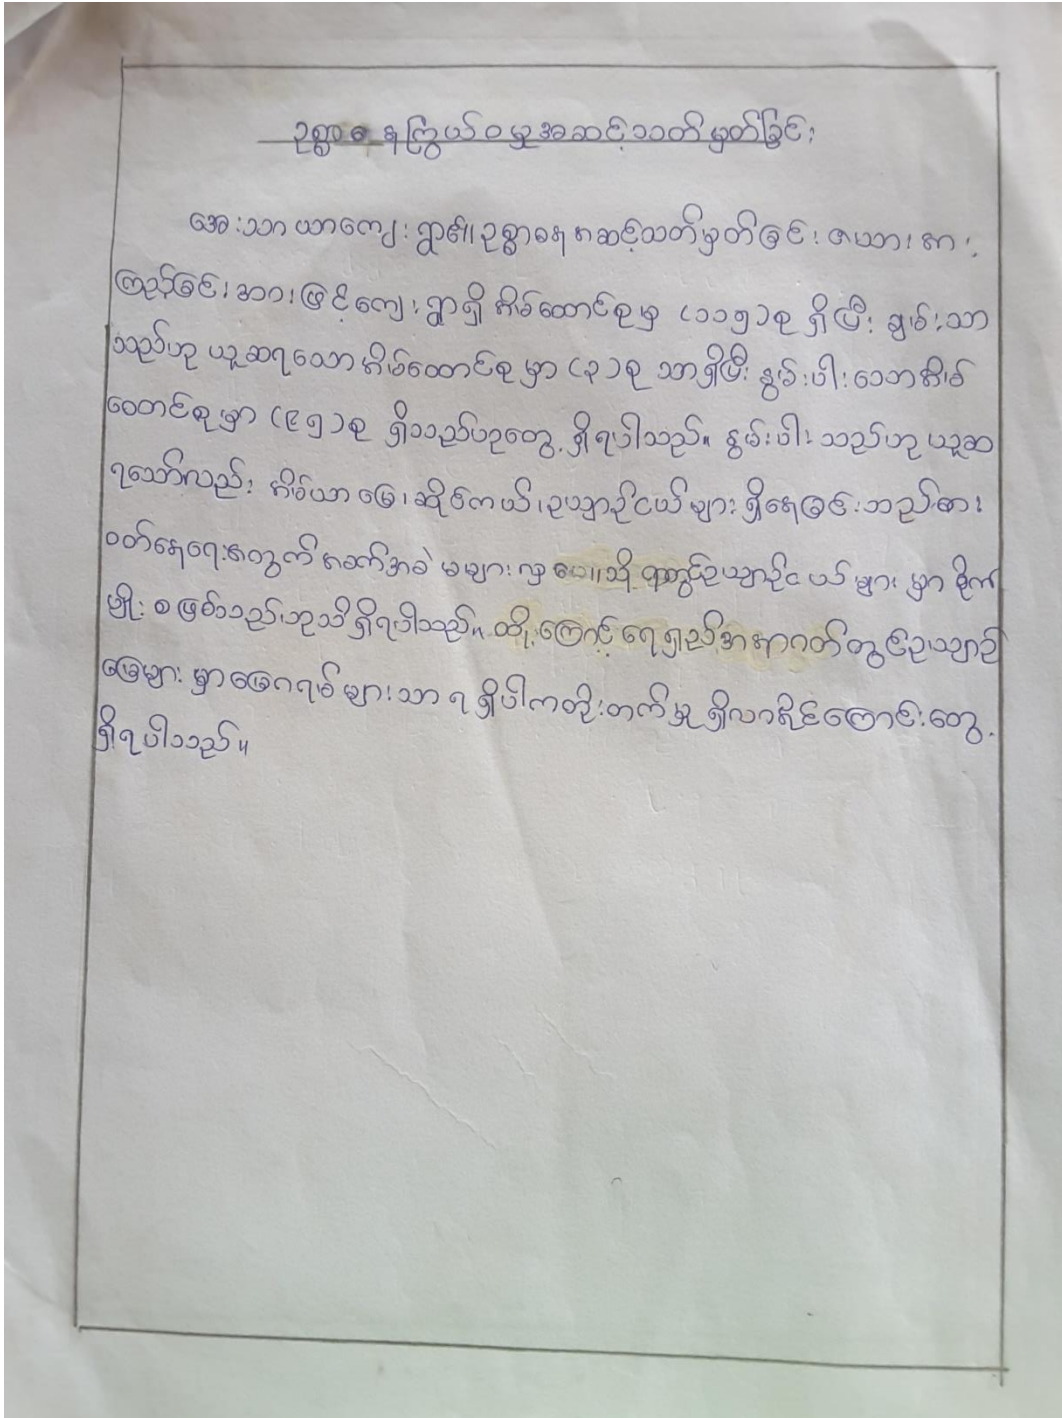 ဥစ္စာဓနကြွယ်ဝမှုအဆင့်သတ်မှတ်ခြင်း
အေးသာယာကျေးရွာ၏ ဥစ္စာဓနအဆင့်သတ်မှတ်ခြင်း ဇယားအား
ကြည့်ခြင်းအားဖြင့်ကျေးရွာရှိ အိမ်ထောင်စုမှ (၁၁၅)စု ရှိပြီး ချမ်းသာ
သည်ဟု ယူဆရသောအိမ်ထောင်စုမှာ (၃)စု သာရှိပြီး နွမ်းပါးသောအိမ်
ထောင်စုမှာ (၉၅)စု ရှိသည်ဟုတွေ့ရှိရပါသည်။ နွမ်းပါးသည်ဟု ယူဆ
ရသော်လည်း အိမ်ယာမြေ၊ ဆိုင်ကယ်၊ ဥယျာဉ်ငယ်များ ရှိနေခြင်းသည်စား
ဝတ်နေရေးအတွက်အခက်အခဲ မများလှပေ။သို့ရာတွင်ဥယျာဉ်ငယ်များ မှာ စိုက်
ပျိုးစဖြစ်သည်ဟုသိရှိရပါသည်။ ထို့ကြောင့် ရေရှည်အနာဂတ်တွင်ဥယျာဉ်
မြေများ မှာမြေဂရမ်များသာ ရရှိပါကတိုးတက်မှု ရှိလာနိုင်ကြောင်းတွေ့
ရှိရပါသည်။